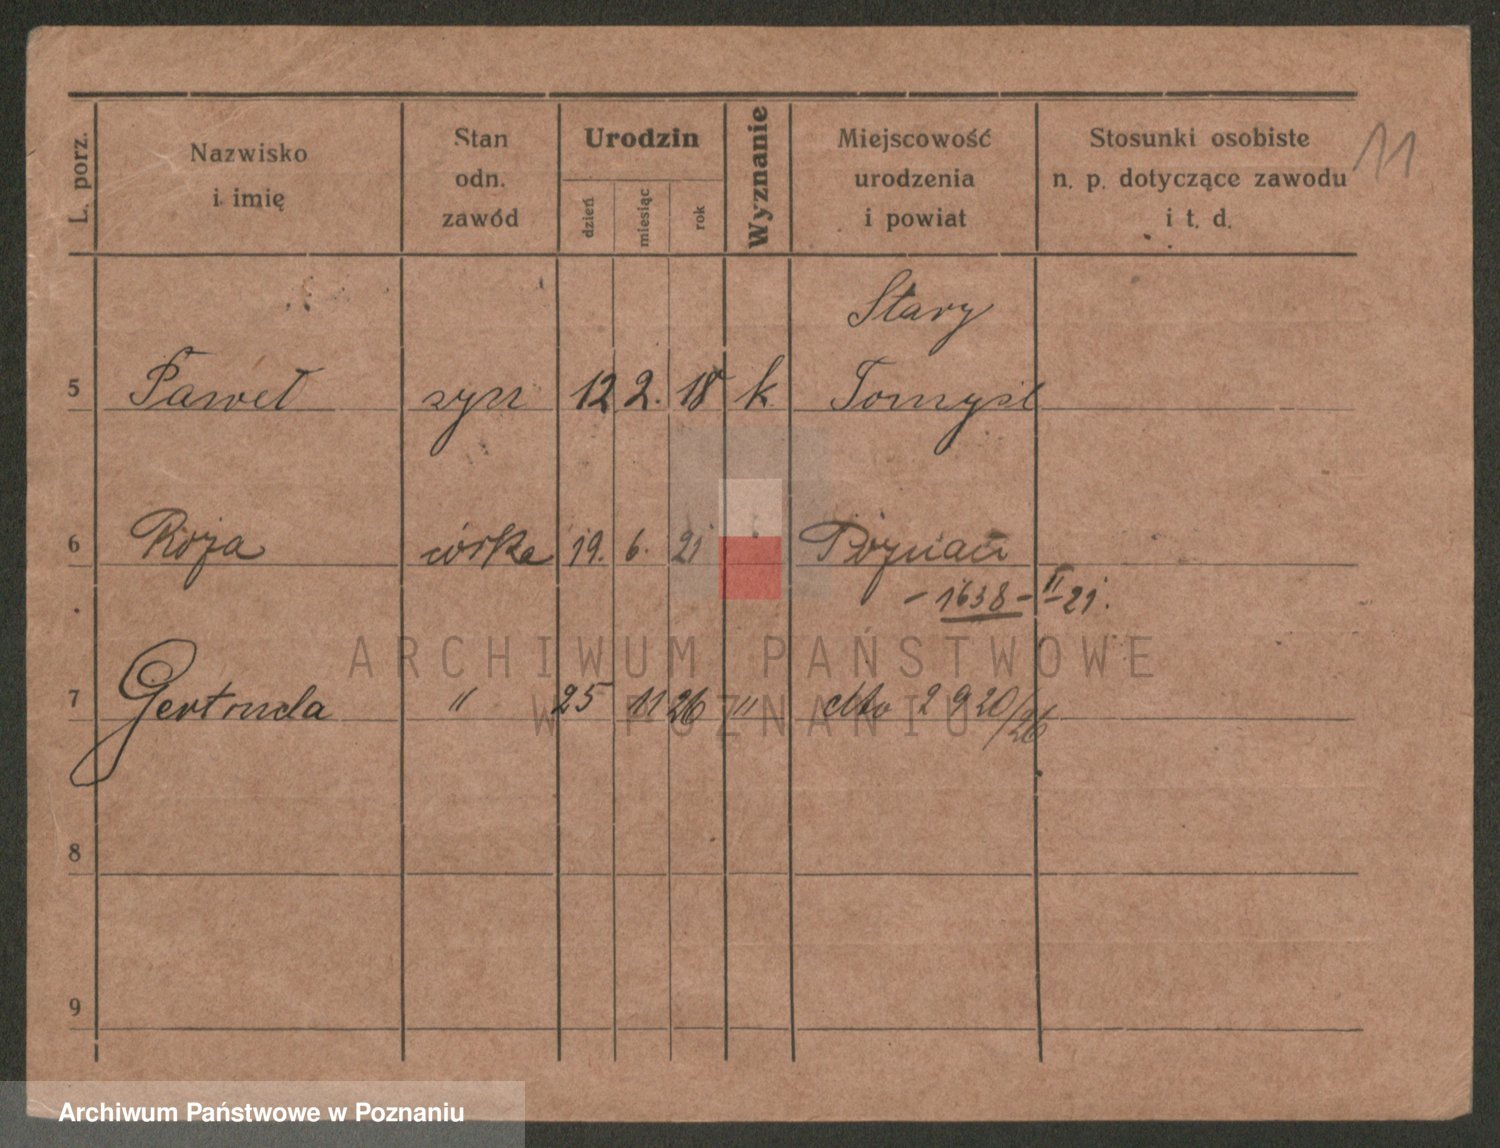 L. porz.
Nazwisko
i imię
Stan
odn.
zawód
Urodzin
dzień
miesiąc
rok
Wyznanie
Miejscowość
urodzenia
i powiat
Stosunki osobiste
n. p. dotyczące zawodu
i t. d.
11
Stary
5 Paweł syn 12 2. 18 k Tomyśl
6 Róża córka 19. 6. 21 " Poznań
- 1638 - II - 21.
ARCHIWUM PAŃSTWOWE
W POZNANIU
7 Gertruda " 25 11 26 " dtto 2920/26
8
9
Archiwum Państwowe w Poznaniu